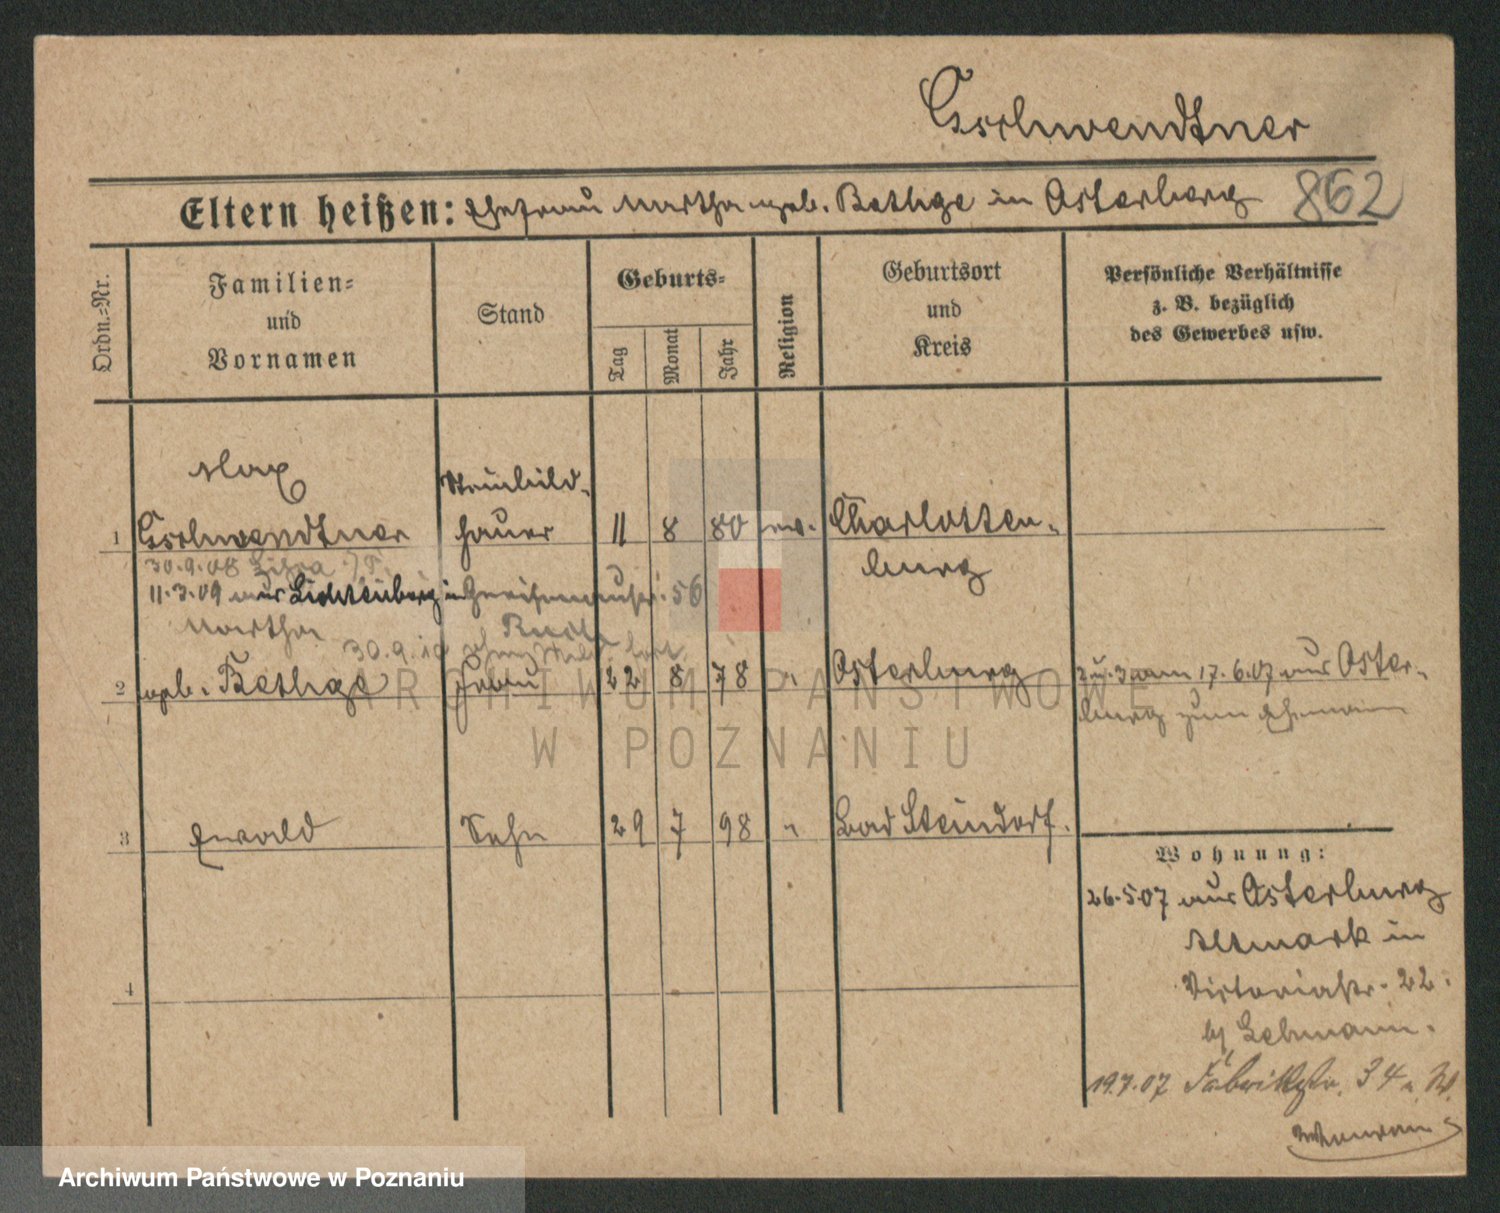 Gschwendtner
Eltern heißen: Ehefrau Martha geb. Bethge in Osterburg 862
Ordn.-Nr.
Familien-
und
Vornamen
Stand
Geburts-
Tag
Monat
Jahr
Religion
Geburtsort
und
Kreis
Persönliche Verhältnisse
z. B. bezüglich
des Gewerbes usw.
Max
Steinbild-
1 Gschwendtner hauer 11 8 80 ev. Charlotten-
burg
30.9.08
11.3.09 aus Lichtenberg in 56
Martha
30.9.10
2 geb. Bethge Frau 22 8 78 " Osterburg 2 u. 3 am 17.6.07 aus Oster-
burg zum Ehemann
3 Ewald Sohn 29 7 98 " Bad Steindorf.
Wohnung:
26.5.07 aus Osterburg
Altmark in
Victoriastr. 22.
b/ Lehmann.
4
19.7.07 Fabrikstr. 34
ARCHIWUM PAŃSTWOWE
W POZNANIU
Archiwum Państwowe w Poznaniu